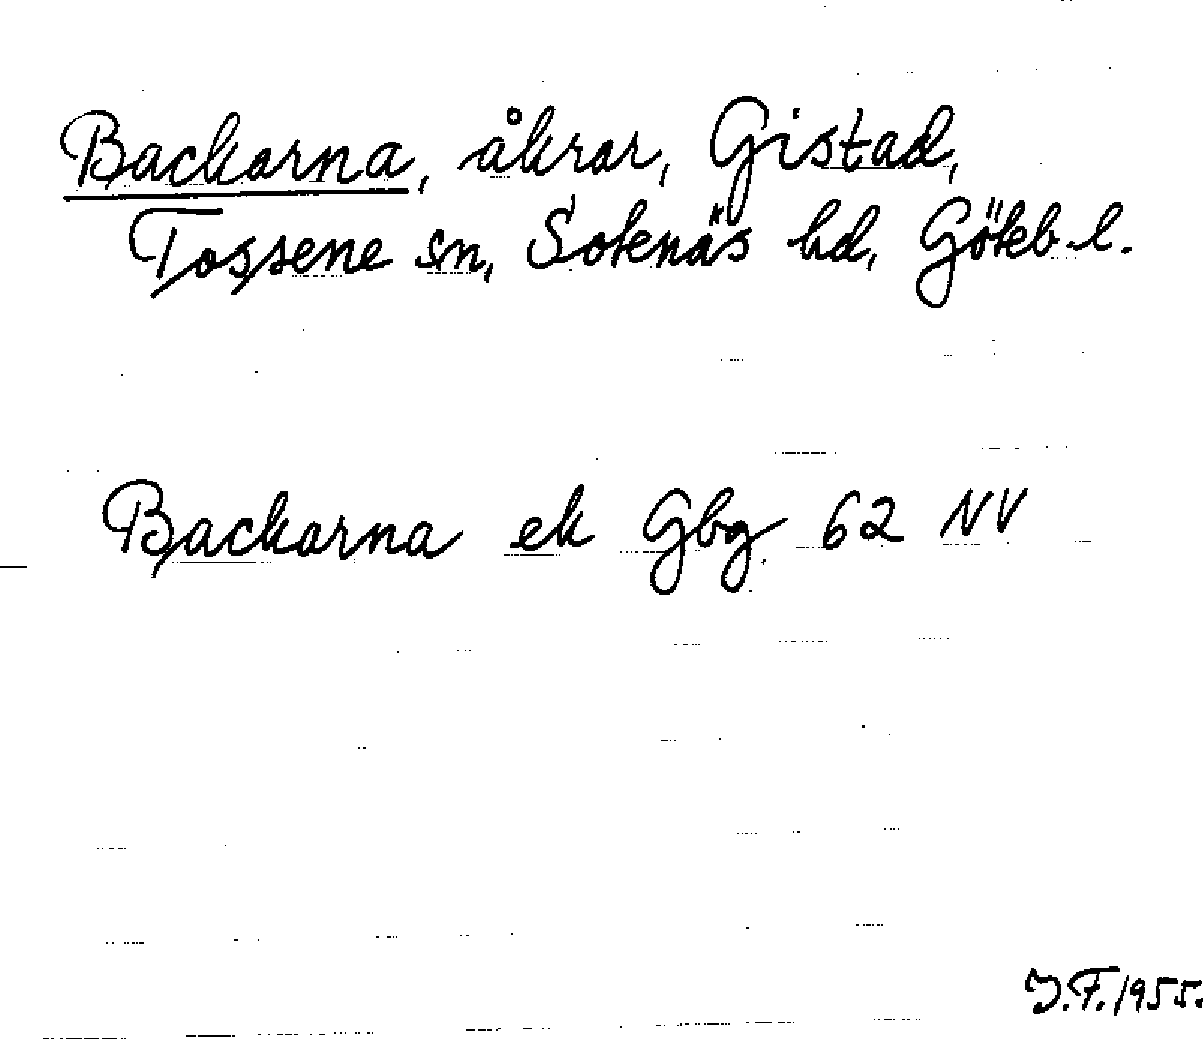 Backarna, åkrar, Gistad,
Tossene sn, Sotenäs hd, Götebl.
Backarna ek Gbg 62 NV
J.F. 1955.